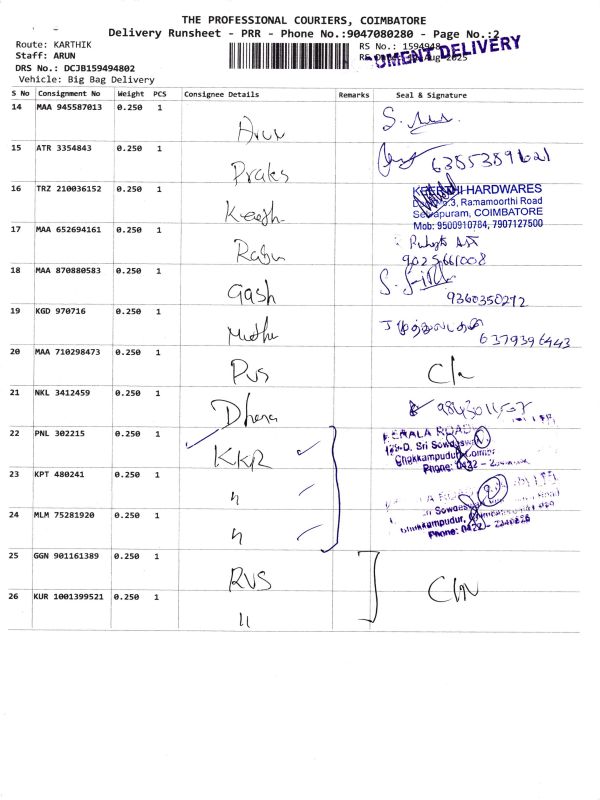 THE PROFESSIONAL COURIERS, COIMBATORE
Delivery Runsheet - PRR - Phone No.:9047080280 - Page No.:2
Route: KARTHIK
Staff: ARUN
DRS No.: DCJB159494802
Vehicle: Big Bag Delivery
RS No.: 1594948
UMENT DELIVERY
Aug-2025
S No Consignment No Weight PCS Consignee Details Remarks Seal & Signature
14 MAA 945587013 0.250 1
Arun
15 ATR 3354843 0.250 1
Praks 6385389621
16 TRZ 210036152 0.250 1
Keerth
KEERTHI HARDWARES
5.3, Ramamoorthi Road
Selvapuram, COIMBATORE
Mob: 9500910784, 7907127500
17 MAA 652694161 0.250 1
Rabu
9025661008
18 MAA 870880583 0.250 1
Gash 9360350272
19 KGD 970716 0.250 1
Muthu 6379396443
20 MAA 710298473 0.250 1
PVS
21 NKL 3412459 0.250 1
Dhana
22 PNL 302215 0.250 1
KKR
KERALA ROAD
Sri Sowdeswari
Chakkampudur, Coimb
Phone: 0422 -
23 KPT 480241 0.250 1
"
24 MLM 75281920 0.250 1
"
Sri Sowdeswari
Chakkampudur,
Phone: 0422 -
25 GGN 901161389 0.250 1
RVS
26 KUR 1001399521 0.250 1
"